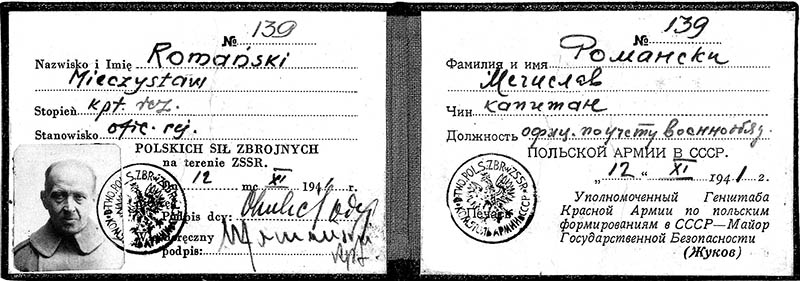 № 139
Nazwisko i Imię Romański
Mieczysław
Stopień kpt. rez.
Stanowisko ofic. rej.
POLSKICH SIŁ ZBROJNYCH
na terenie ZSSR.
12 XI 1941 r.
Podpis dcy:
podpis:
№ 139
Фамилия и имя Романски
Мечислав
Чин капитан
Должность офиц. по учету военнообяз.
ПОЛЬСКОЙ АРМИИ В СССР.
„12“ XI 1941 г.
Печать
Уполномоченный Генштаба
Красной Армии по польским
формированиям в СССР—Майор
Государственной Безопасности
(Жуков)